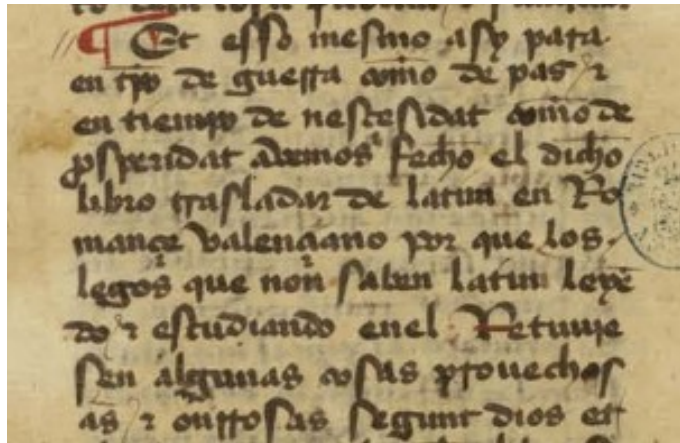 ¶ Et esso mesmo asy para
en tpo de guerra como de pas τ
en tiempo de nescesidat como de
prosperidat auemos fecho el dicho
libro trasladar de latin en Ro
mançe valençiano por que los
legos que non saben latin leyẽ
do τ estudiando enel Retuuie
sen algunas cosas prouechos
as τ onrrosas segunt dios et